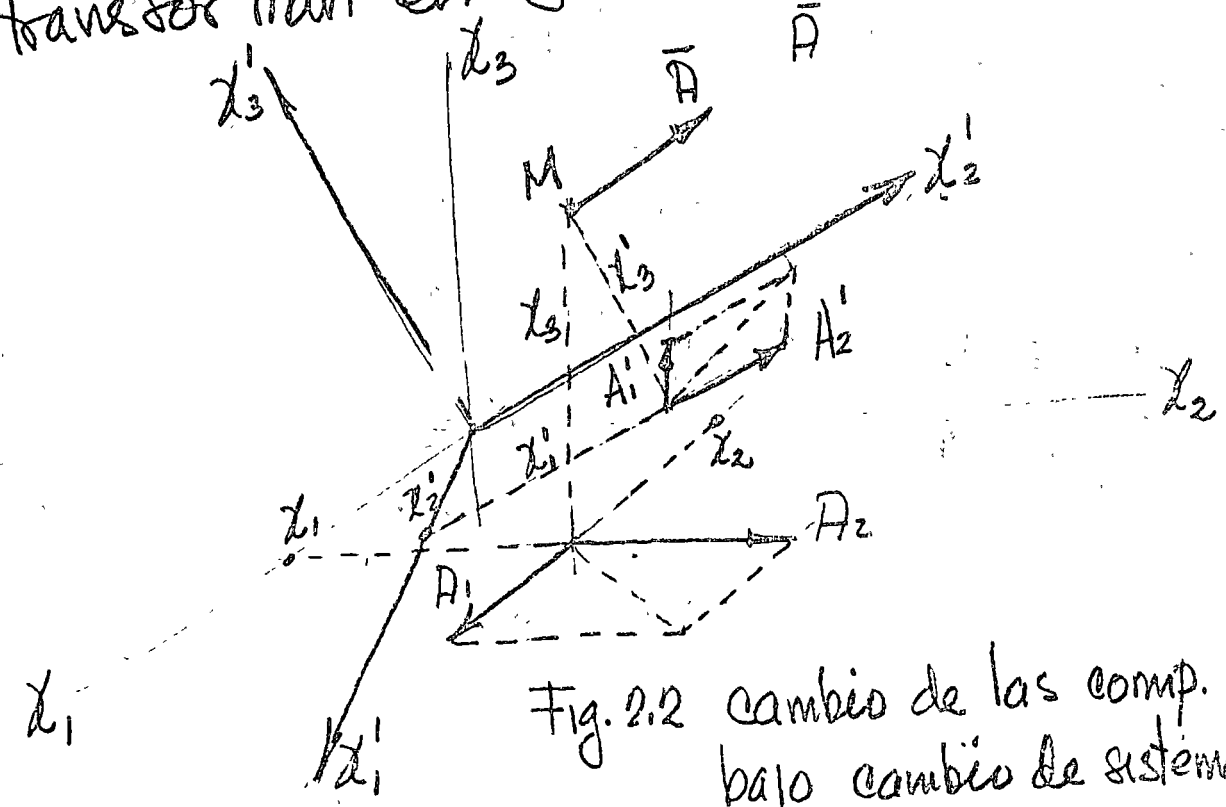 transfor
x'3
x3
Ā
Ā
M
x'2
x'3
x3
A'1
A'2
x2
x'1
x2
x'2
x1
A2
A1
x1
x'1
Fig. 2.2 cambio de las comp.
bajo cambio de sistem